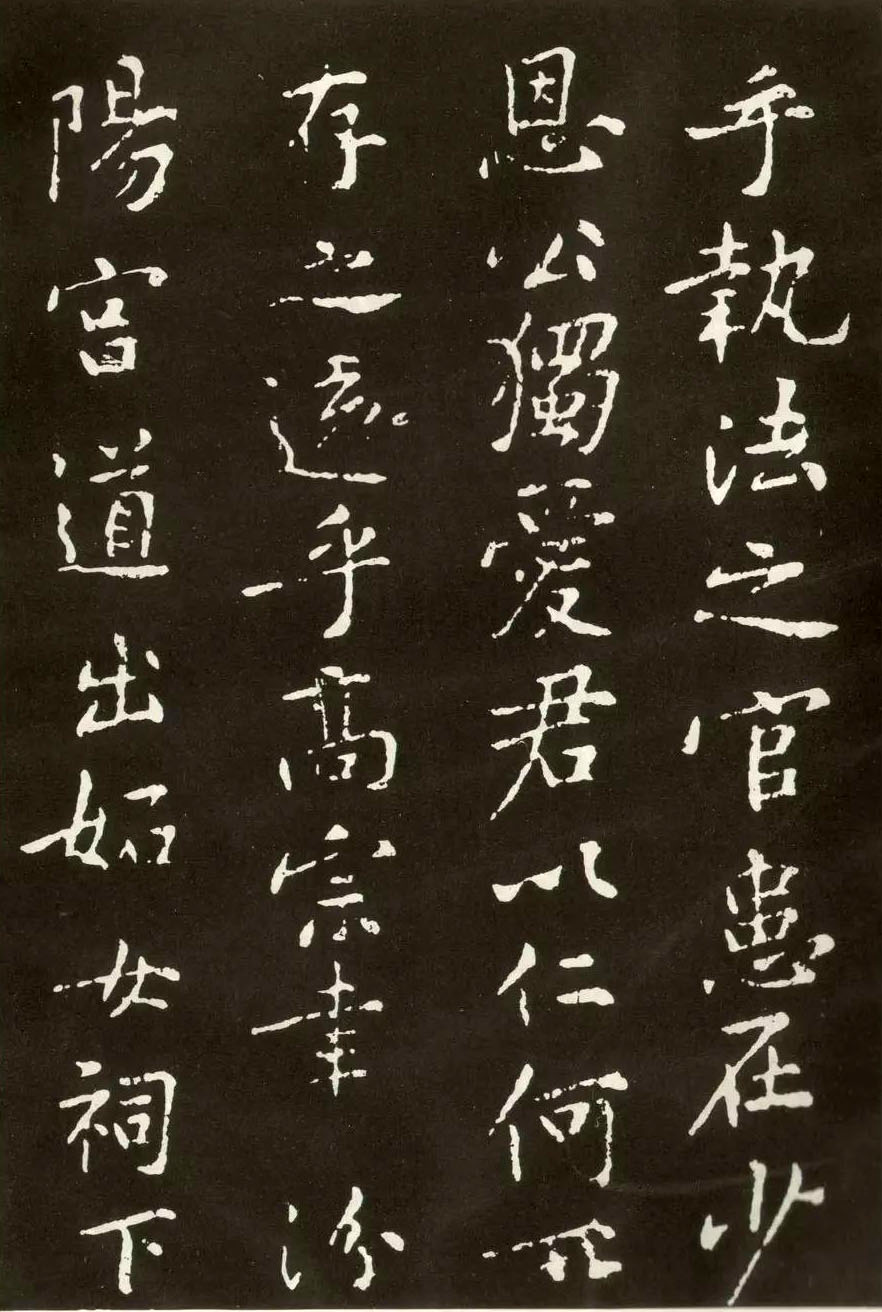 乎執法之官患在少
恩公獨愛君以仁何所
存之遠乎高宗幸汾
陽宮道出妬女祠下